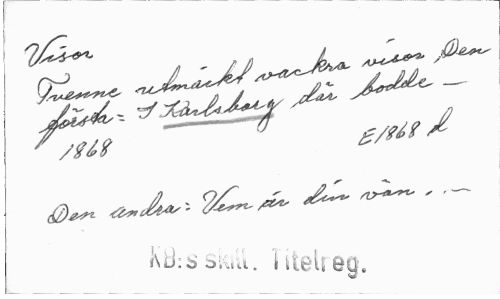 Visor
Tvenne utmäckt vackra visor, Den
första = I Karlsborg där bodde –
1868
E1868 d
Den andra: Vem är din vän . –
KB:s skill. Titelreg.